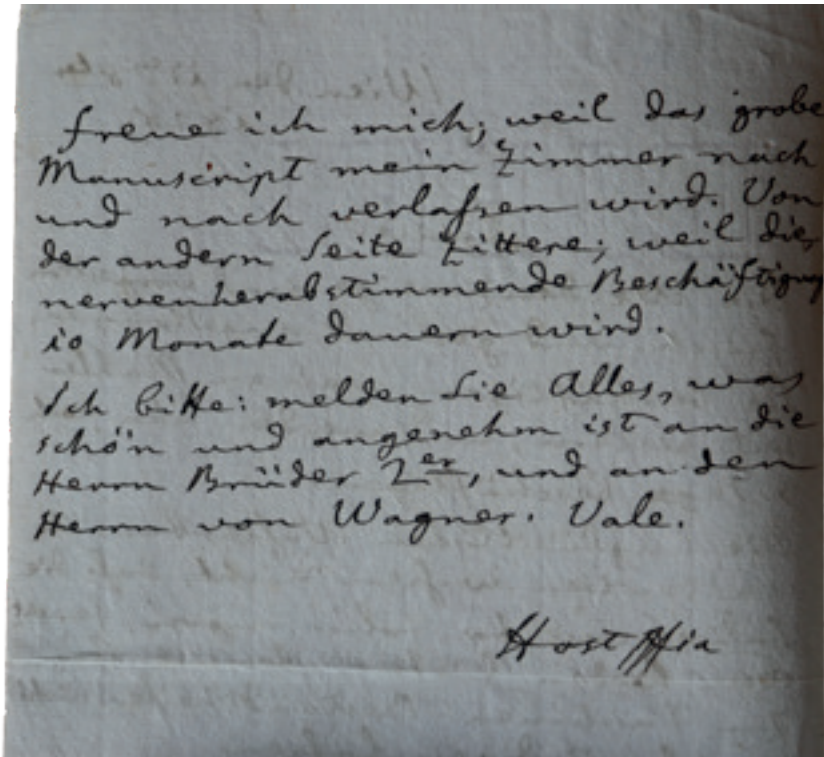 freue ich mich; weil das grobe
Manuscript mein Zimmer nach
und nach verlaßen wird. Von
der andern Seite zittere; weil die
nervenherabstimmende Beschäftigung
10 Monate dauern wird.
Ich bitte: melden Sie Alles, was
schön und angenehm ist an die
Herrn Brüder Zer, und an den
Herrn von Wagner. Vale.
Host